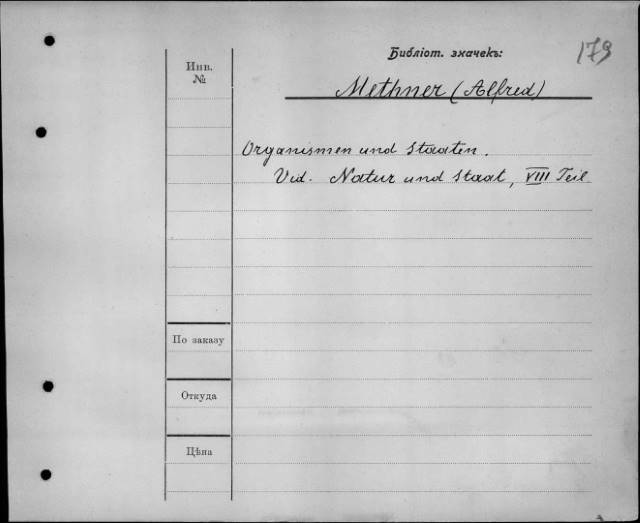 Библіот. значекъ:
179
Инв.
№
Methner (Alfred)
Organismen und Staaten.
Vid. Natur und Staat, VIII Teil
По заказу
Откуда
Цѣна